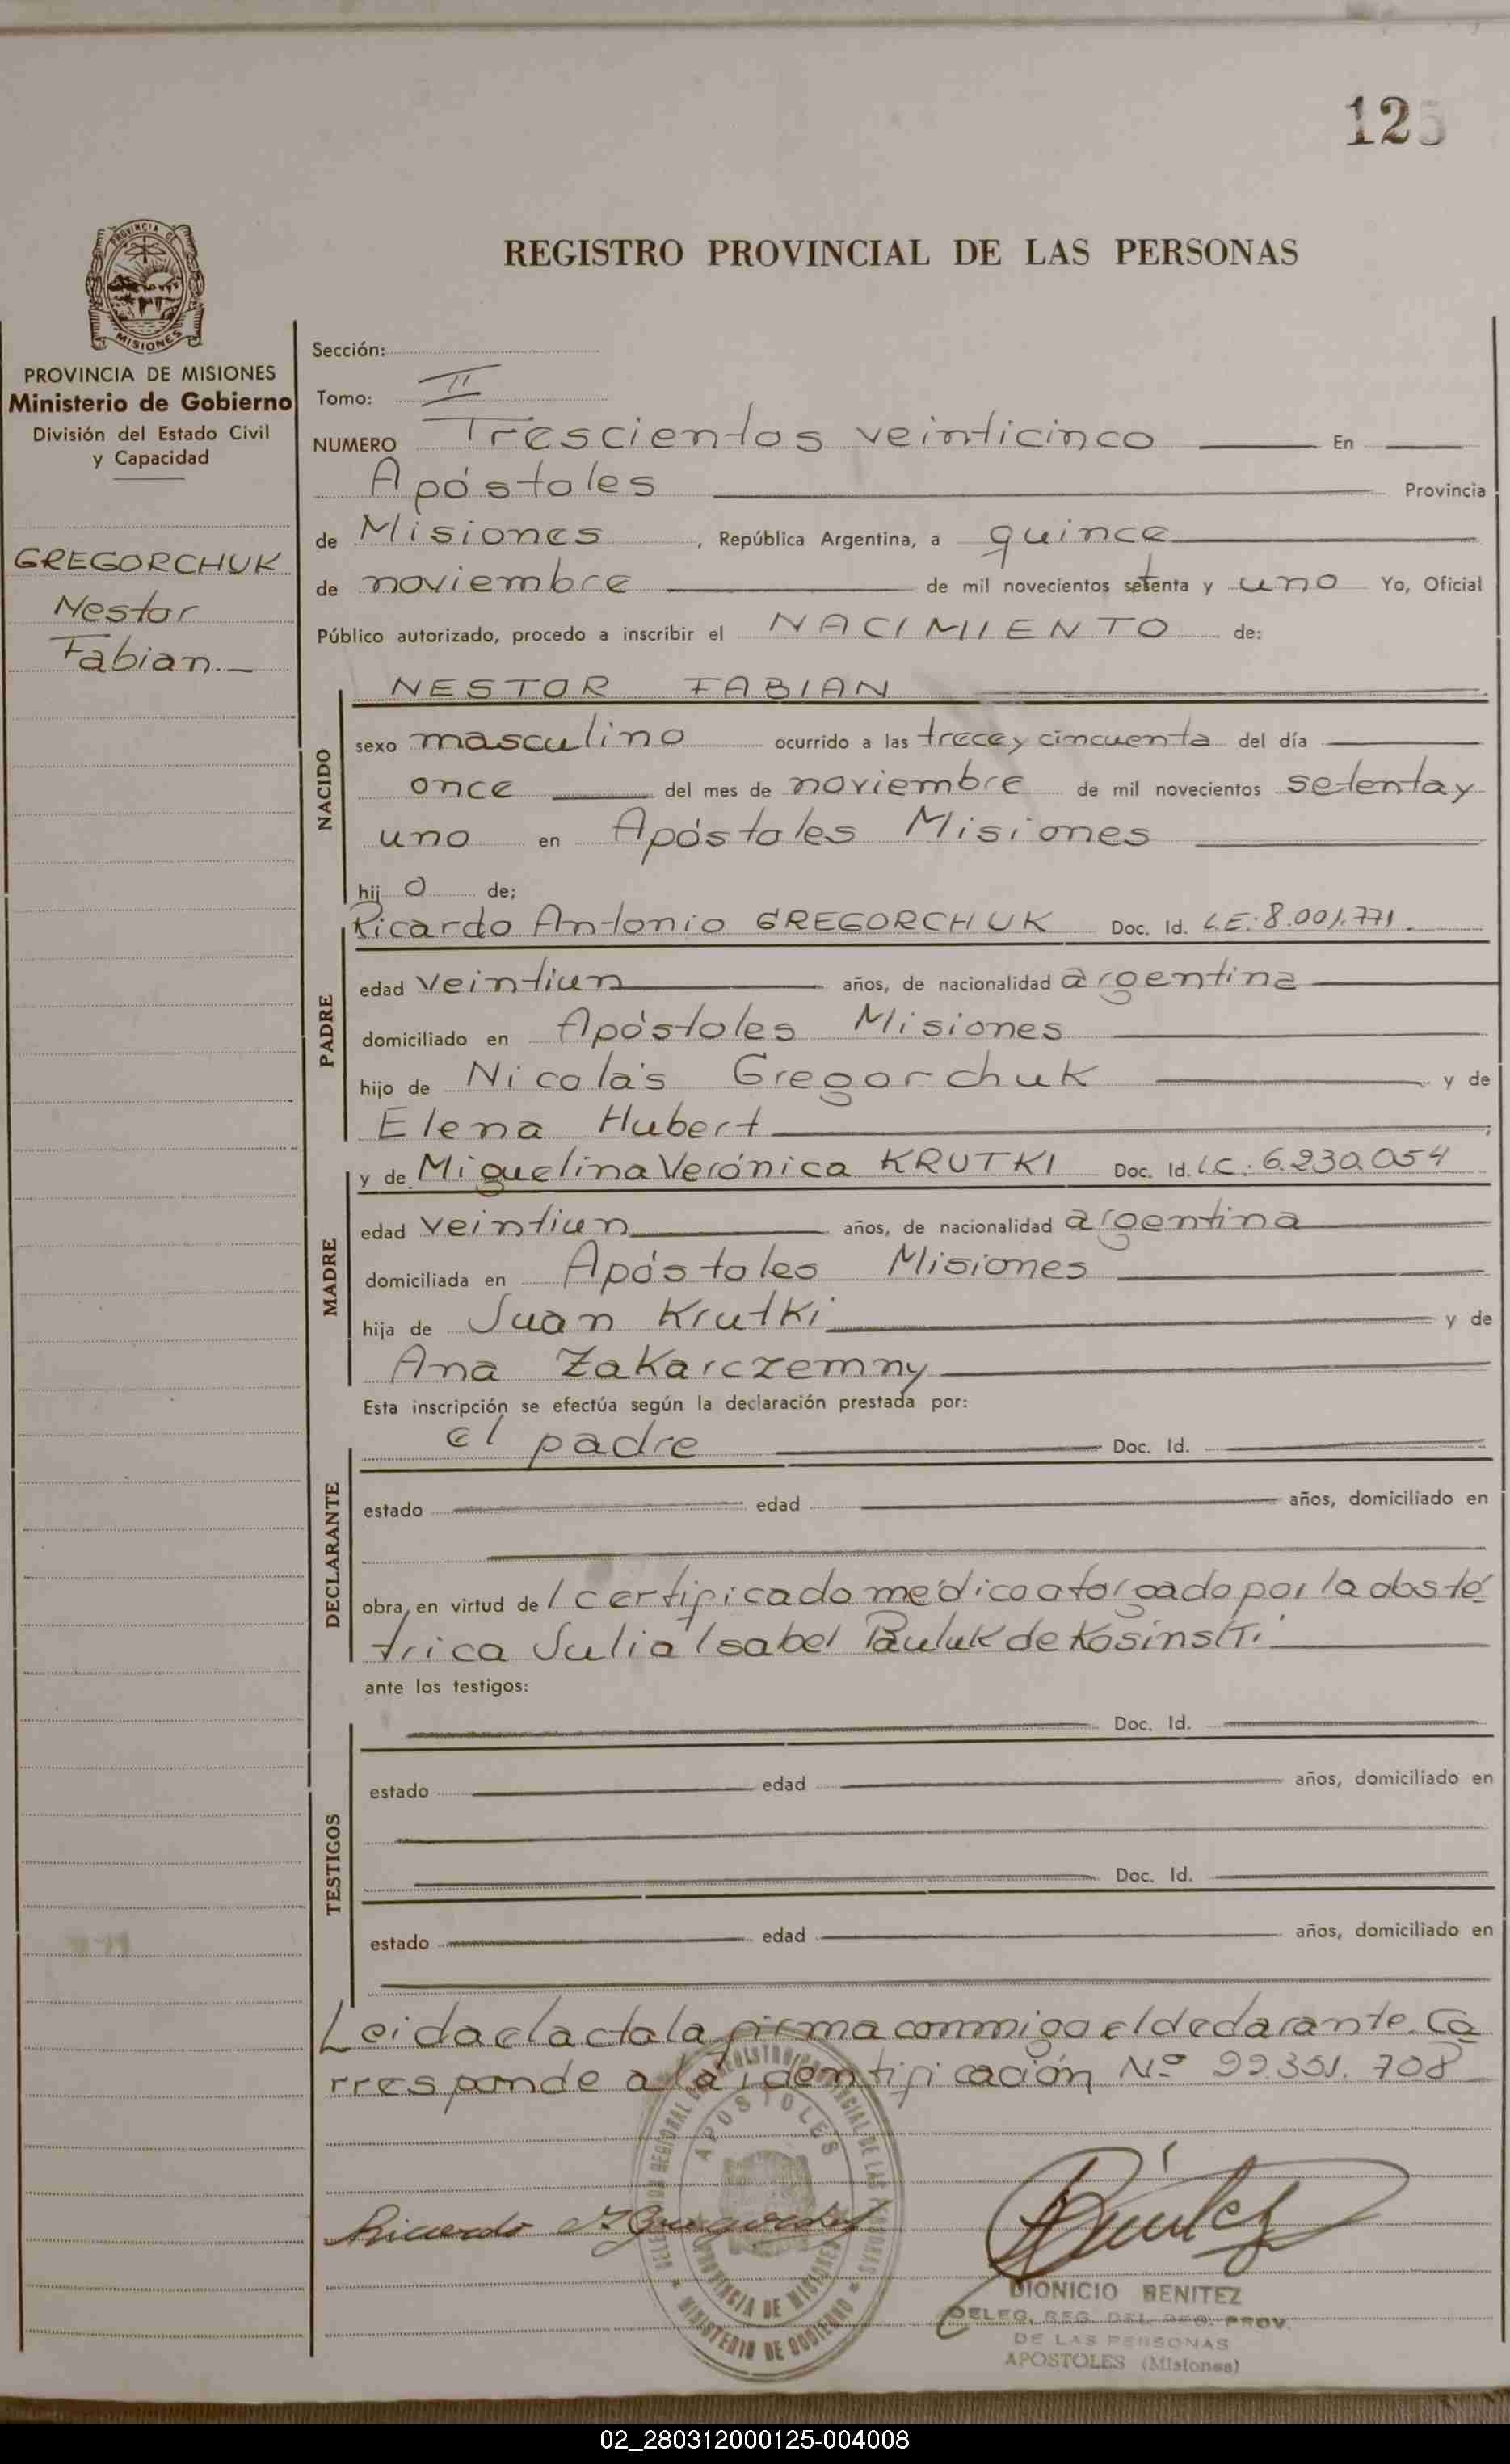 125
PROVINCIA DE
MISIONES
REGISTRO PROVINCIAL DE LAS PERSONAS
PROVINCIA DE MISIONES
Ministerio de Gobierno
División del Estado Civil
y Capacidad
GREGORCHUK
Nestor
Fabian.
Sección:
Tomo: II
NUMERO Trescientos veinticinco En
Apóstoles Provincia
de Misiones, República Argentina, a quince
de noviembre de mil novecientos setenta y uno Yo, Oficial
Público autorizado, procedo a inscribir el NACIMIENTO de:
NACIDO
NESTOR FABIAN
sexo masculino ocurrido a las trece y cincuenta del día
once del mes de noviembre de mil novecientos setenta y
uno en Apóstoles Misiones
hij o de;
PADRE
Ricardo Antonio GREGORCHUK Doc. Id. L.E: 8.001.771
edad veintiun años, de nacionalidad argentina
domiciliado en Apóstoles Misiones
hijo de Nicolás Gregorchuk y de
Elena Hubert
MADRE
y de Miguelina Verónica KRUTKI Doc. Id. L.C. 6.230.054
edad veintiun años, de nacionalidad argentina
domiciliada en Apóstoles Misiones
hija de Juan Krutki y de
Ana Zakarczemny
Esta inscripción se efectúa según la declaración prestada por:
DECLARANTE
el padre Doc. Id.
estado edad años, domiciliado en
obra, en virtud de l certificado médico otorgado por la obsté
trica Julia Isabel Pauluk de Kosinski
ante los testigos:
TESTIGOS
Doc. Id.
estado edad años, domiciliado en
Doc. Id.
estado edad años, domiciliado en
Leida el acta la firma conmigo el declarante. Co
rresponde a la identificación Nº 22.351.708
APOSTOLES
PROVINCIA DE MISIONES
MINISTERIO DE GOBIERNO
Ricardo A Gregorchuk
Benitez
DIONICIO BENITEZ
DELEG. REG. DEL REG. PROV.
DE LAS PERSONAS
APOSTOLES (Misiones)
02_280312000125-004008